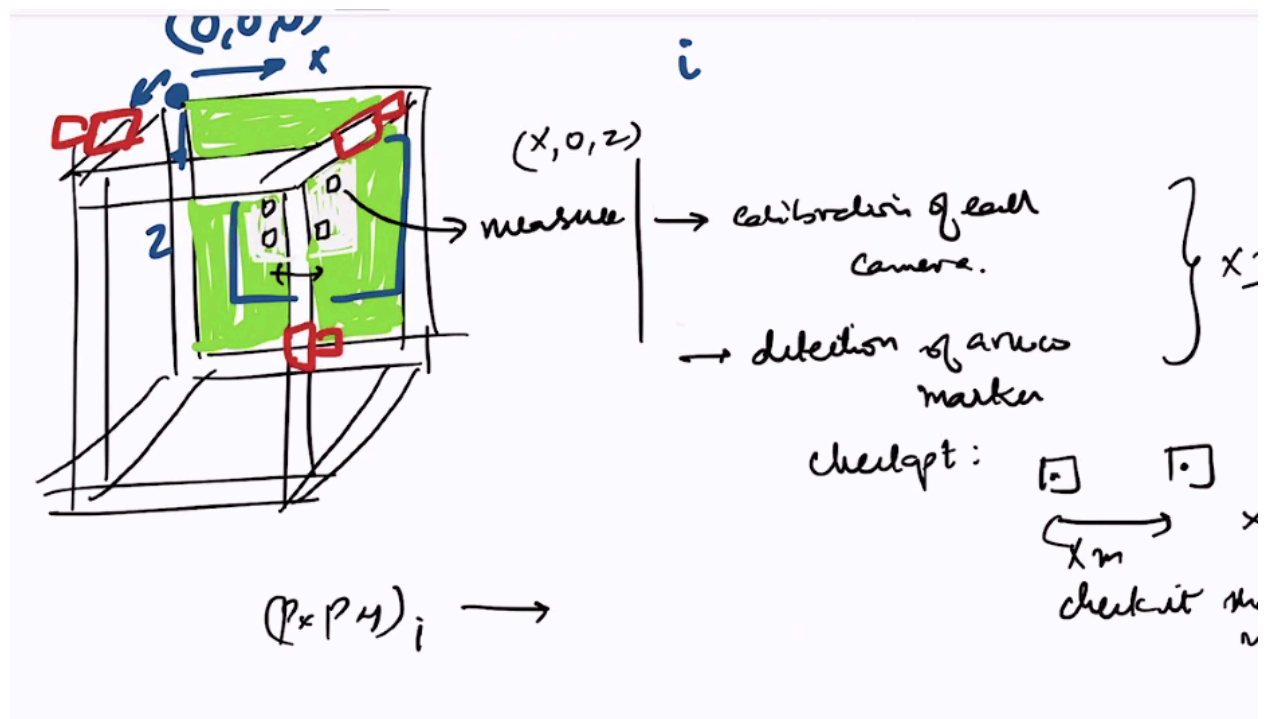 (0,0,0)
x
i
(x,0,z)
z
measure
calibration of each
camera.
x
detection of aruco
marker
checkpt:
x m
checkit
(Px Py)i